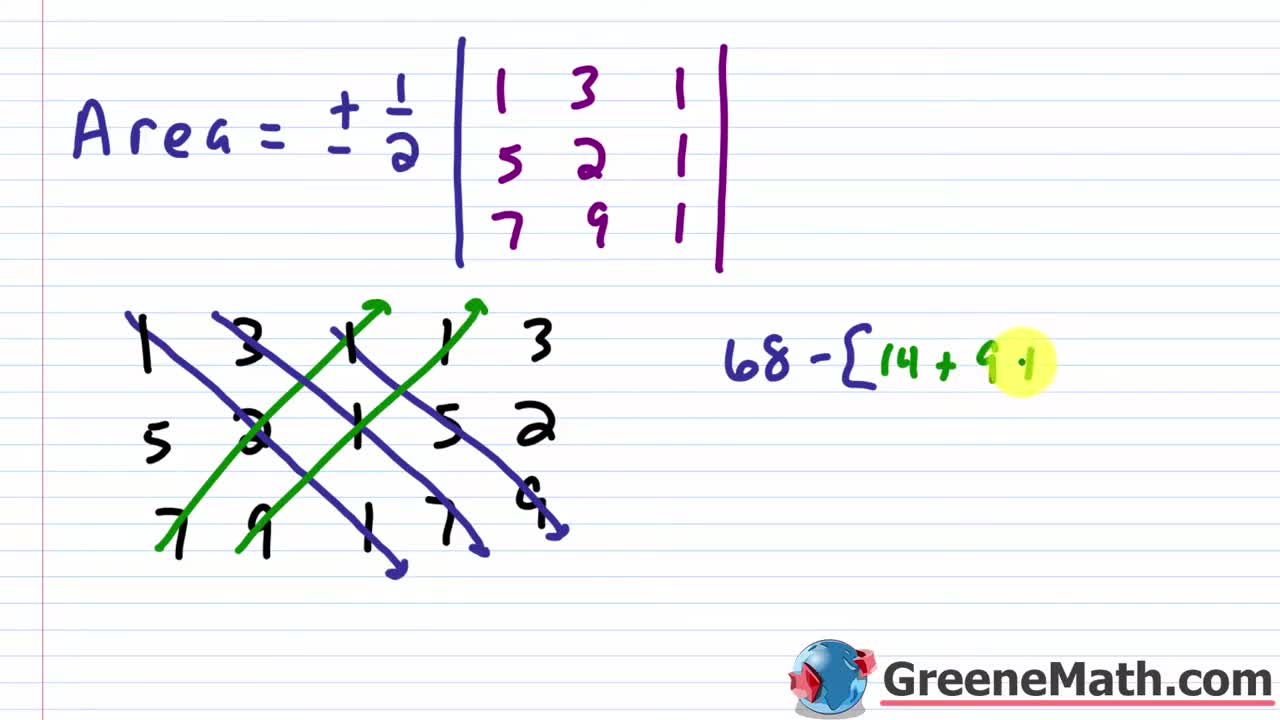 Area = ± 1/2 | 1 3 1 |
| 5 2 1 |
| 7 9 1 |
1 3 1 1 3
5 2 1 5 2
7 9 1 7 9
68 - [14 + 9 · 1
GreeneMath.com